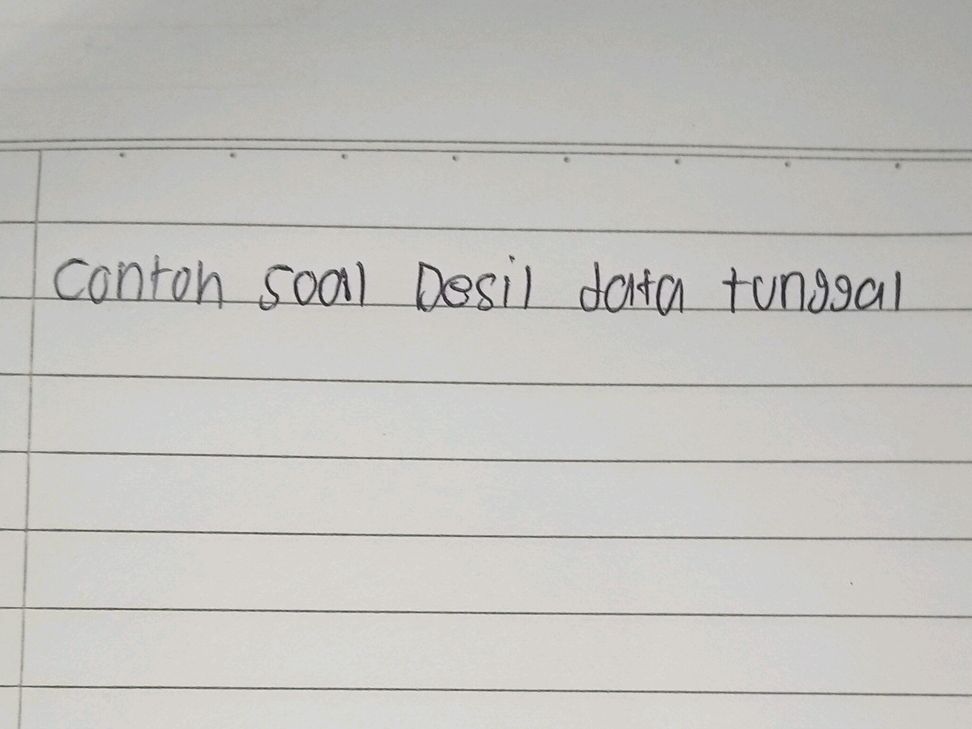 Contoh soal Desil data tunggal